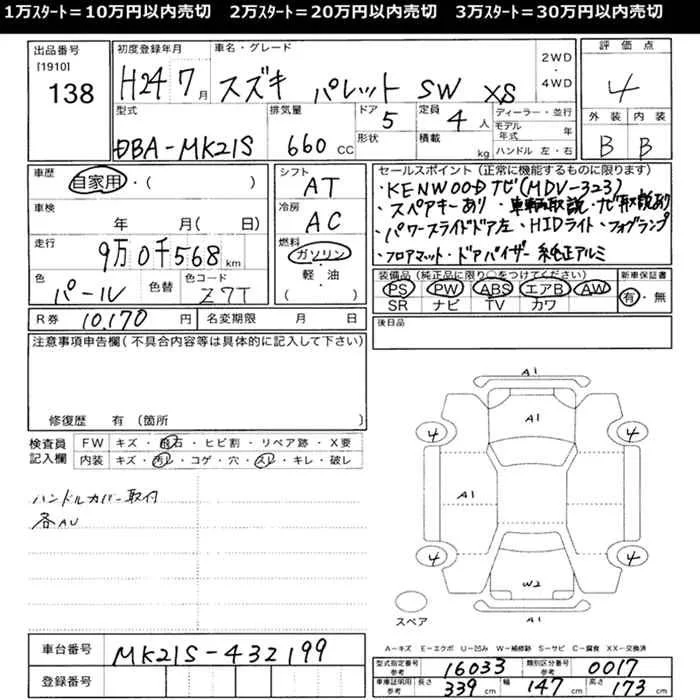 1万ｽﾀｰﾄ＝10万円以内売切　2万ｽﾀｰﾄ＝20万円以内売切　3万ｽﾀｰﾄ＝30万円以内売切
出品番号
[1910]
138
初度登録年月
H24 7月
車名・グレード
スズキ パレット SW XS
2WD
・
4WD
評価点
4
外装 内装
B B
型式
DBA-MK21S
排気量
660 CC
ドア 5
形状
定員 4 人
積載 kg
ディーラー・並行
モデル年式 年
ハンドル 左・右
車歴
自家用・( )
車検
年 月 ( 日)
走行
9万0千568km
色
パール
色替
色コード
Z7T
シフト
AT
冷房
AC
燃料
ガソリン
・
軽・油
( )
セールスポイント (正常に機能するものに限ります)
・KENWOODナビ(MDV-323)
・スペアキーあり・車輌取説・ナビ取説あり
・パワースライドドア左・HIDライト・フォグランプ
・フロアマット・ドアバイザー 純正アルミ
装備品 (純正品に限り○をつけてください)
PS PW ABS エアB AW
SR ナビ TV カワ
新車保証書
有・無
R券 10,170 円
名変期限 月 日
後日品
注意事項申告欄(不具合内容等は具体的に記入して下さい)
修復歴 有 (箇所 )
検査員
記入欄
FW キズ・飛石・ヒビ割・リペア跡・X要
内装 キズ・汚レ・コゲ・穴・スレ・キレ・破レ
ハンドルカバー取付
各AU
A1
A1
4 4
A1
4 4
W2
A1
スペア
A－キズ E－エクボ U－凹み W－補修跡 S－サビ C－腐食 XX－交換済
車台番号
MK21S-432199
登録番号
型式指定番号
参考
16033
類別区分番号
参考
0017
車庫証明用
参考
長さ 339 cm 幅 147 cm 高さ 173 cm